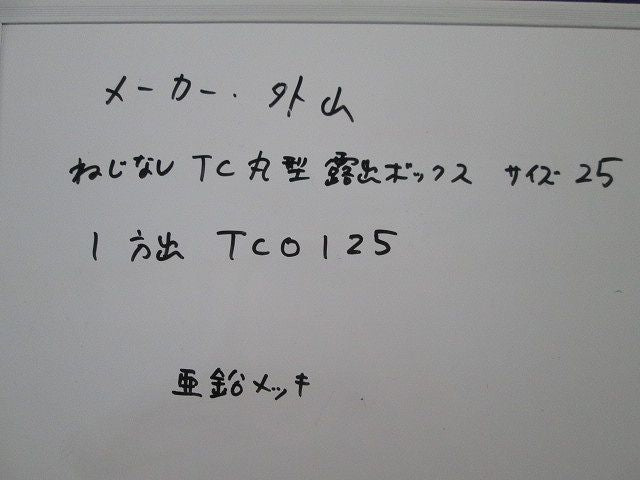 メーカー. 外山
ねじなし TC 丸型 露出ボックス サイズ 25
1 方出 TC0125
亜鉛メッキ